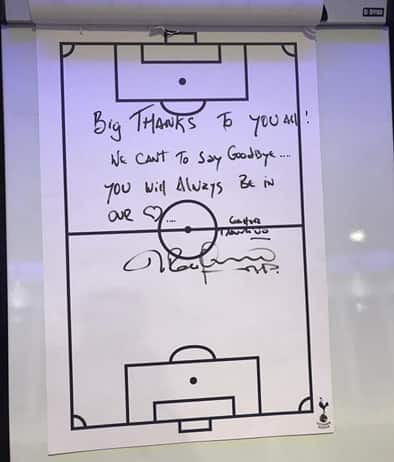 Big THANKS To YOU All!
We CAN'T To Say Goodbye....
YOU Will Always Be in
OUR ♡....